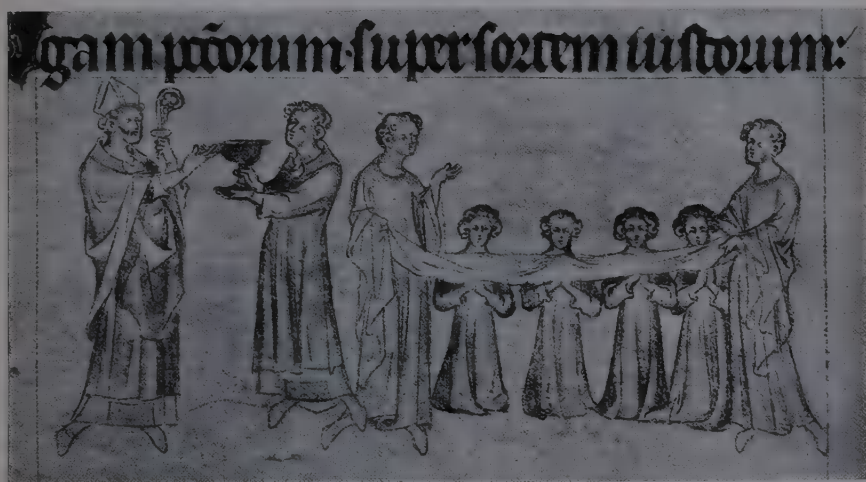 gam pctōrum·super sortem iustorum: